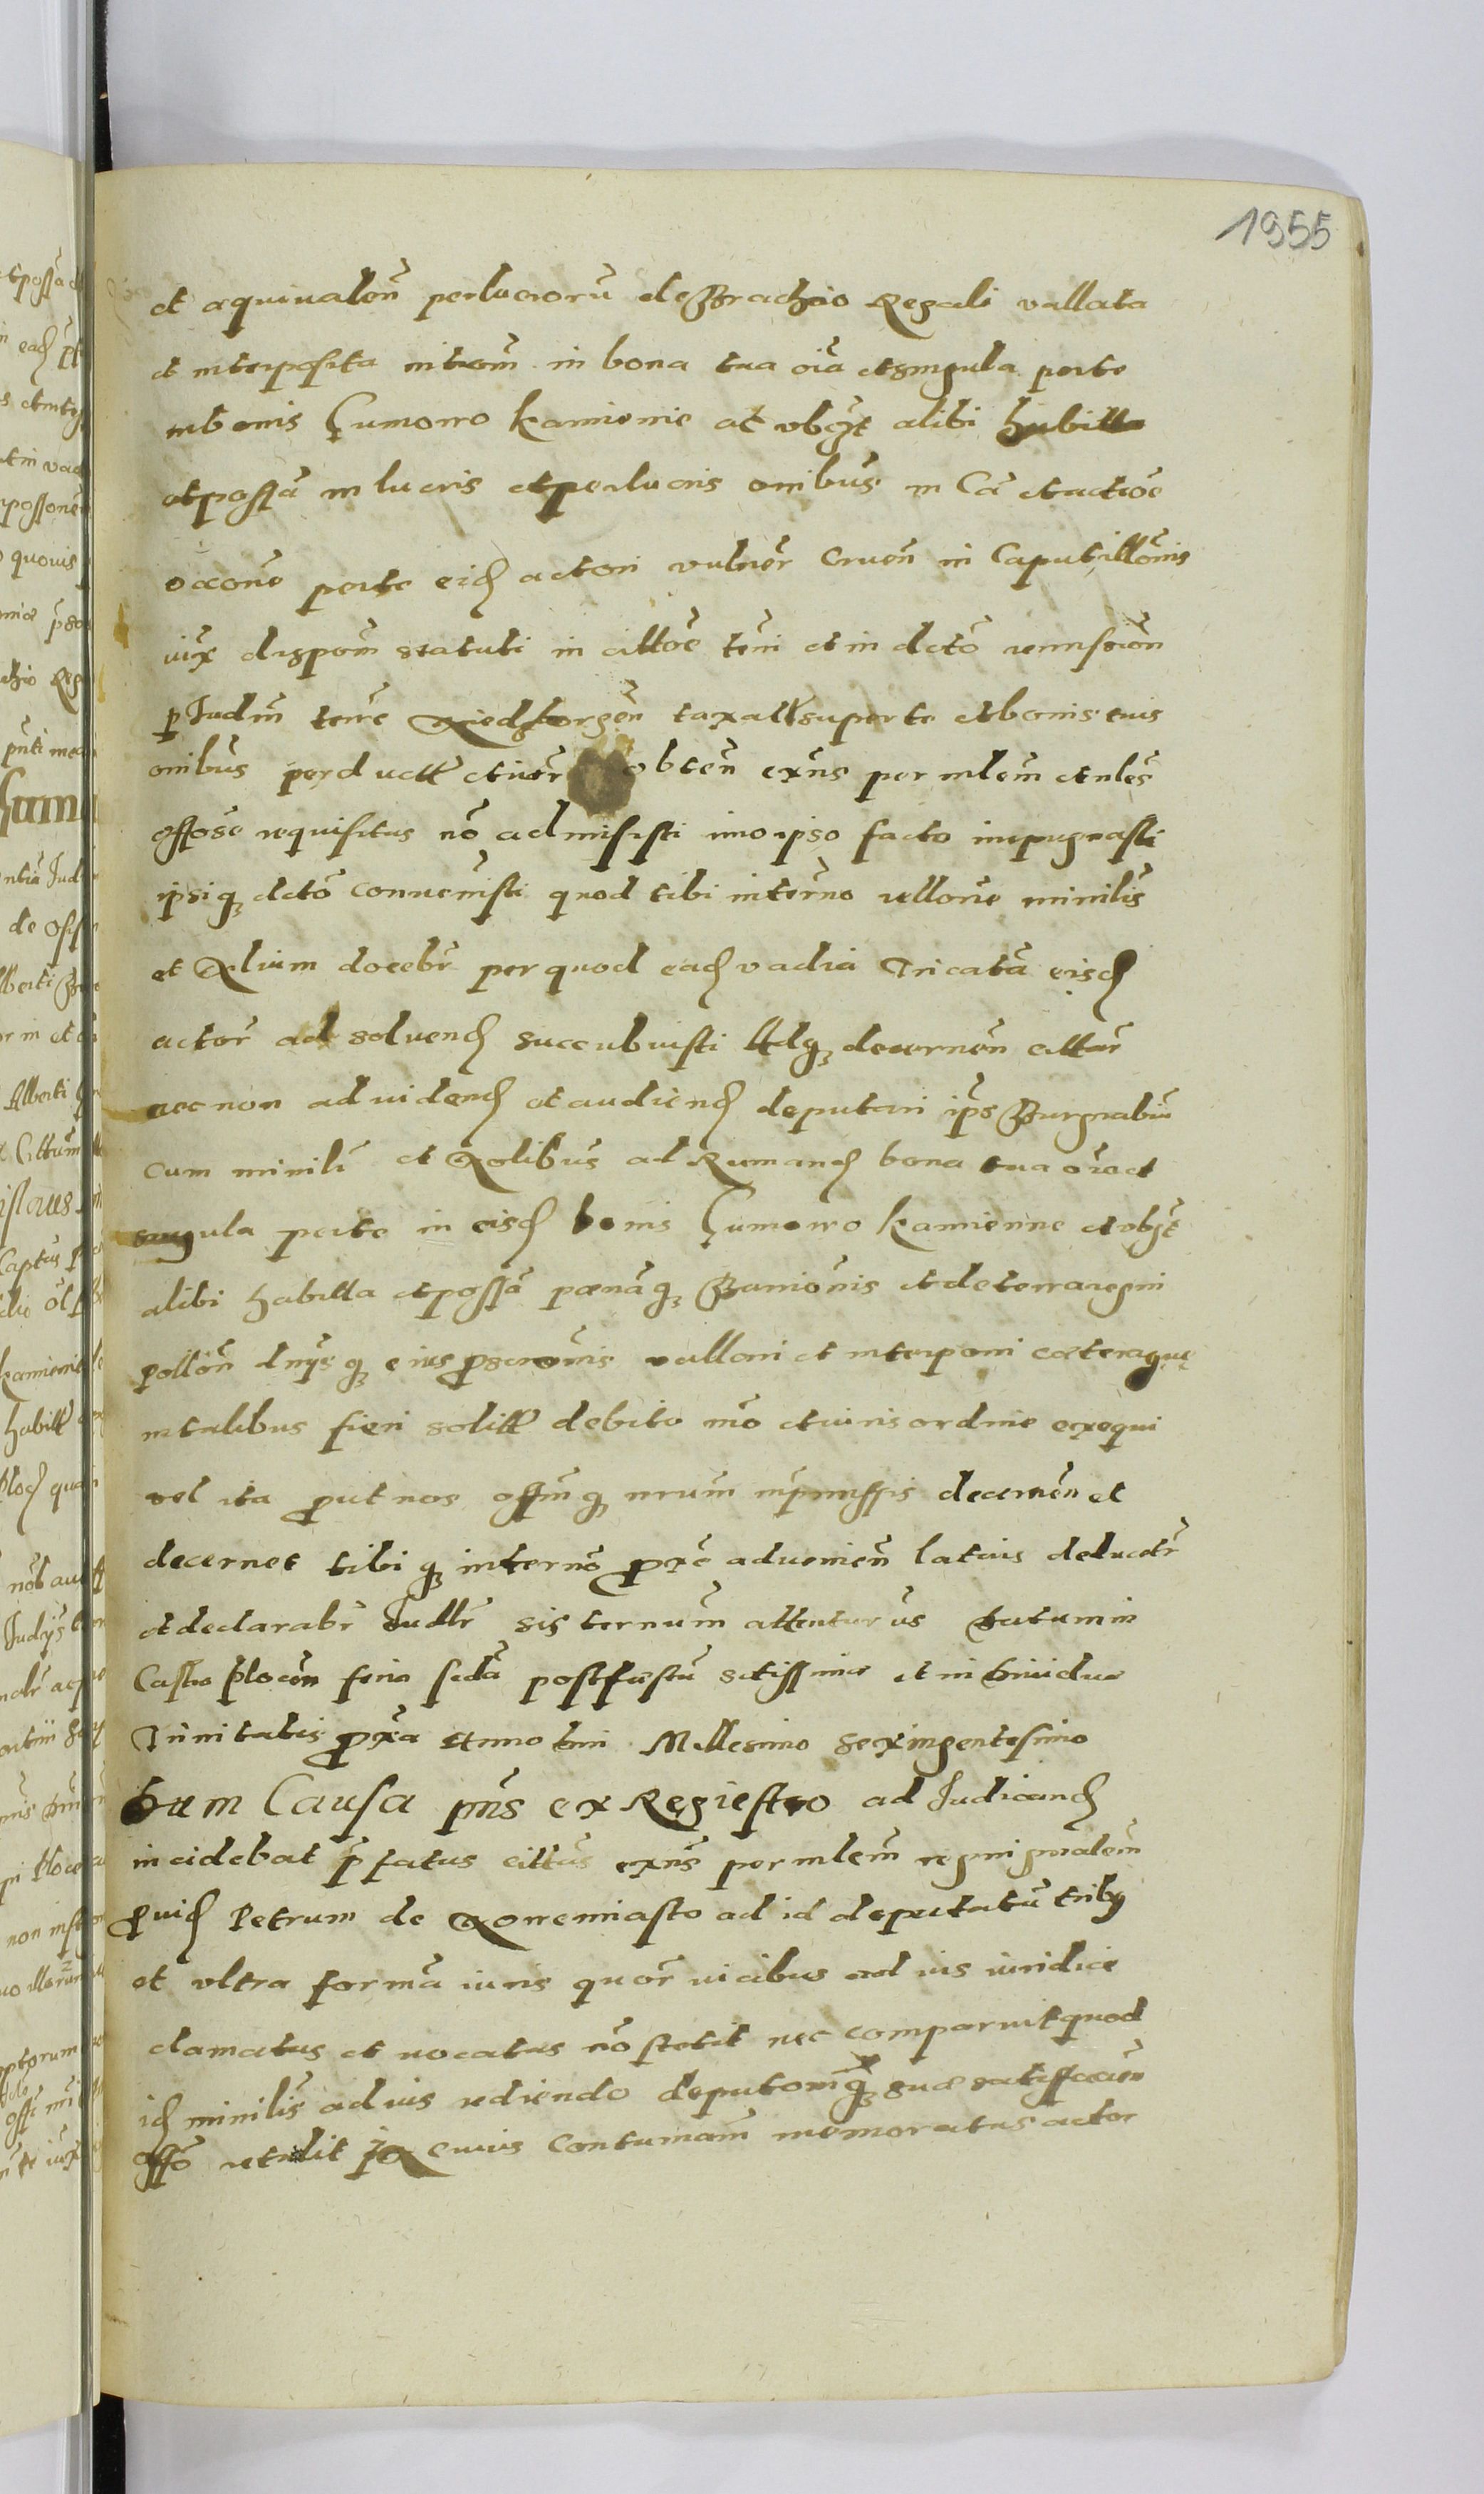 1955
et aquiualeñ perlucrorũ de Brachio Regali vallata
et interposita introm̃ in bona tua oĩa et singula perte
in bonis Gumowo Kamienie at vbq̃t alibi habitta
et possã in lucris et perlucris omnibũs in Cã et actiõe
occoñe perte eidꝫ actori vulner̃ cruen̄ in Caput illõnis
iux̃ dispom̃ statuti in cittõe teñi et in dctõ remission̄
p Judm̃ terre taxatt super te et bonis tuis
omibũs perductt et iter̃ obteñ exñs per mlem̃ et nles̃
offose requisitus nõ admisisti imo ipso facto impugnasti
ipsiqꝫ dctõ contrauenisti quod tibi in terño ullone minilis̃
et Nlium docebr̃ per quod eadꝫ vadia Tricatã eisdꝫ
actor̃ ad soluendꝫ succubuisti decernen̄ cittar̃
nec non ad uidendꝫ et audiendꝫ deputari ips̃ Burgrabiũ
cum minili et Nolibũs ad Rumandꝫ bona tua oĩa et
singula perte in eisdꝫ bonis Gumowo Kamienne et vbq̃t
alibi habitta et possã pœnãqꝫ Banionis et de terra regni
pollon̄ dnÿsqꝫ eius p̃scronis vallari et interponi cæteraque
in talibus fieri solitt debito mõ et iuris ordine exequi
vel ita prout nos offm̃qꝫ nrum̃ in p̃missis decernen̄ et
decernet tibiqꝫ in termõ prox̃e aduenien̄ latius deducetr̃
et declarabr̃ Judlr̃ sis ternum̃ attenturus Datum in
Castro Plocen̄ feria scdã post festũ sctissimæ et indiuiduæ
Trinitatis prox̃a Anno dni Millesimo sexingentesimo
Dum Causa pñs ex Regiestro ad Judicandꝫ
incidebat p̃fatus citts̃ exñs per mlem̃ regni gnalem̃
prouidꝫ Petrum de Noremiasto ad id deputatũ tribꝫ
et vltra formã iuris quor̃ uicibus ad ius iuridice
clamatus et uocatus nõ stetit nec comparuit quod
idꝫ minilis̃ ad ius rediendo deputoniqꝫ suæ satisfacien̄
offõ retulit In cuius Contumam̃ memoratus actor